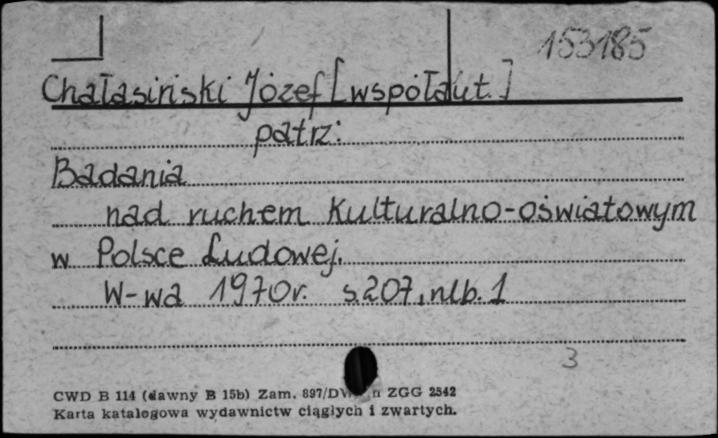 153185
Chałasiński Józef [współaut.]
patrz:
Badania
nad ruchem Kulturalno-oświatowym
w Polsce Ludowej.
W-wa 1970r. s.207, nlb. 1
3
CWD B 114 (dawny B 15b) Zam. 897/DW n ZGG 2542
Karta katalogowa wydawnictw ciągłych i zwartych.